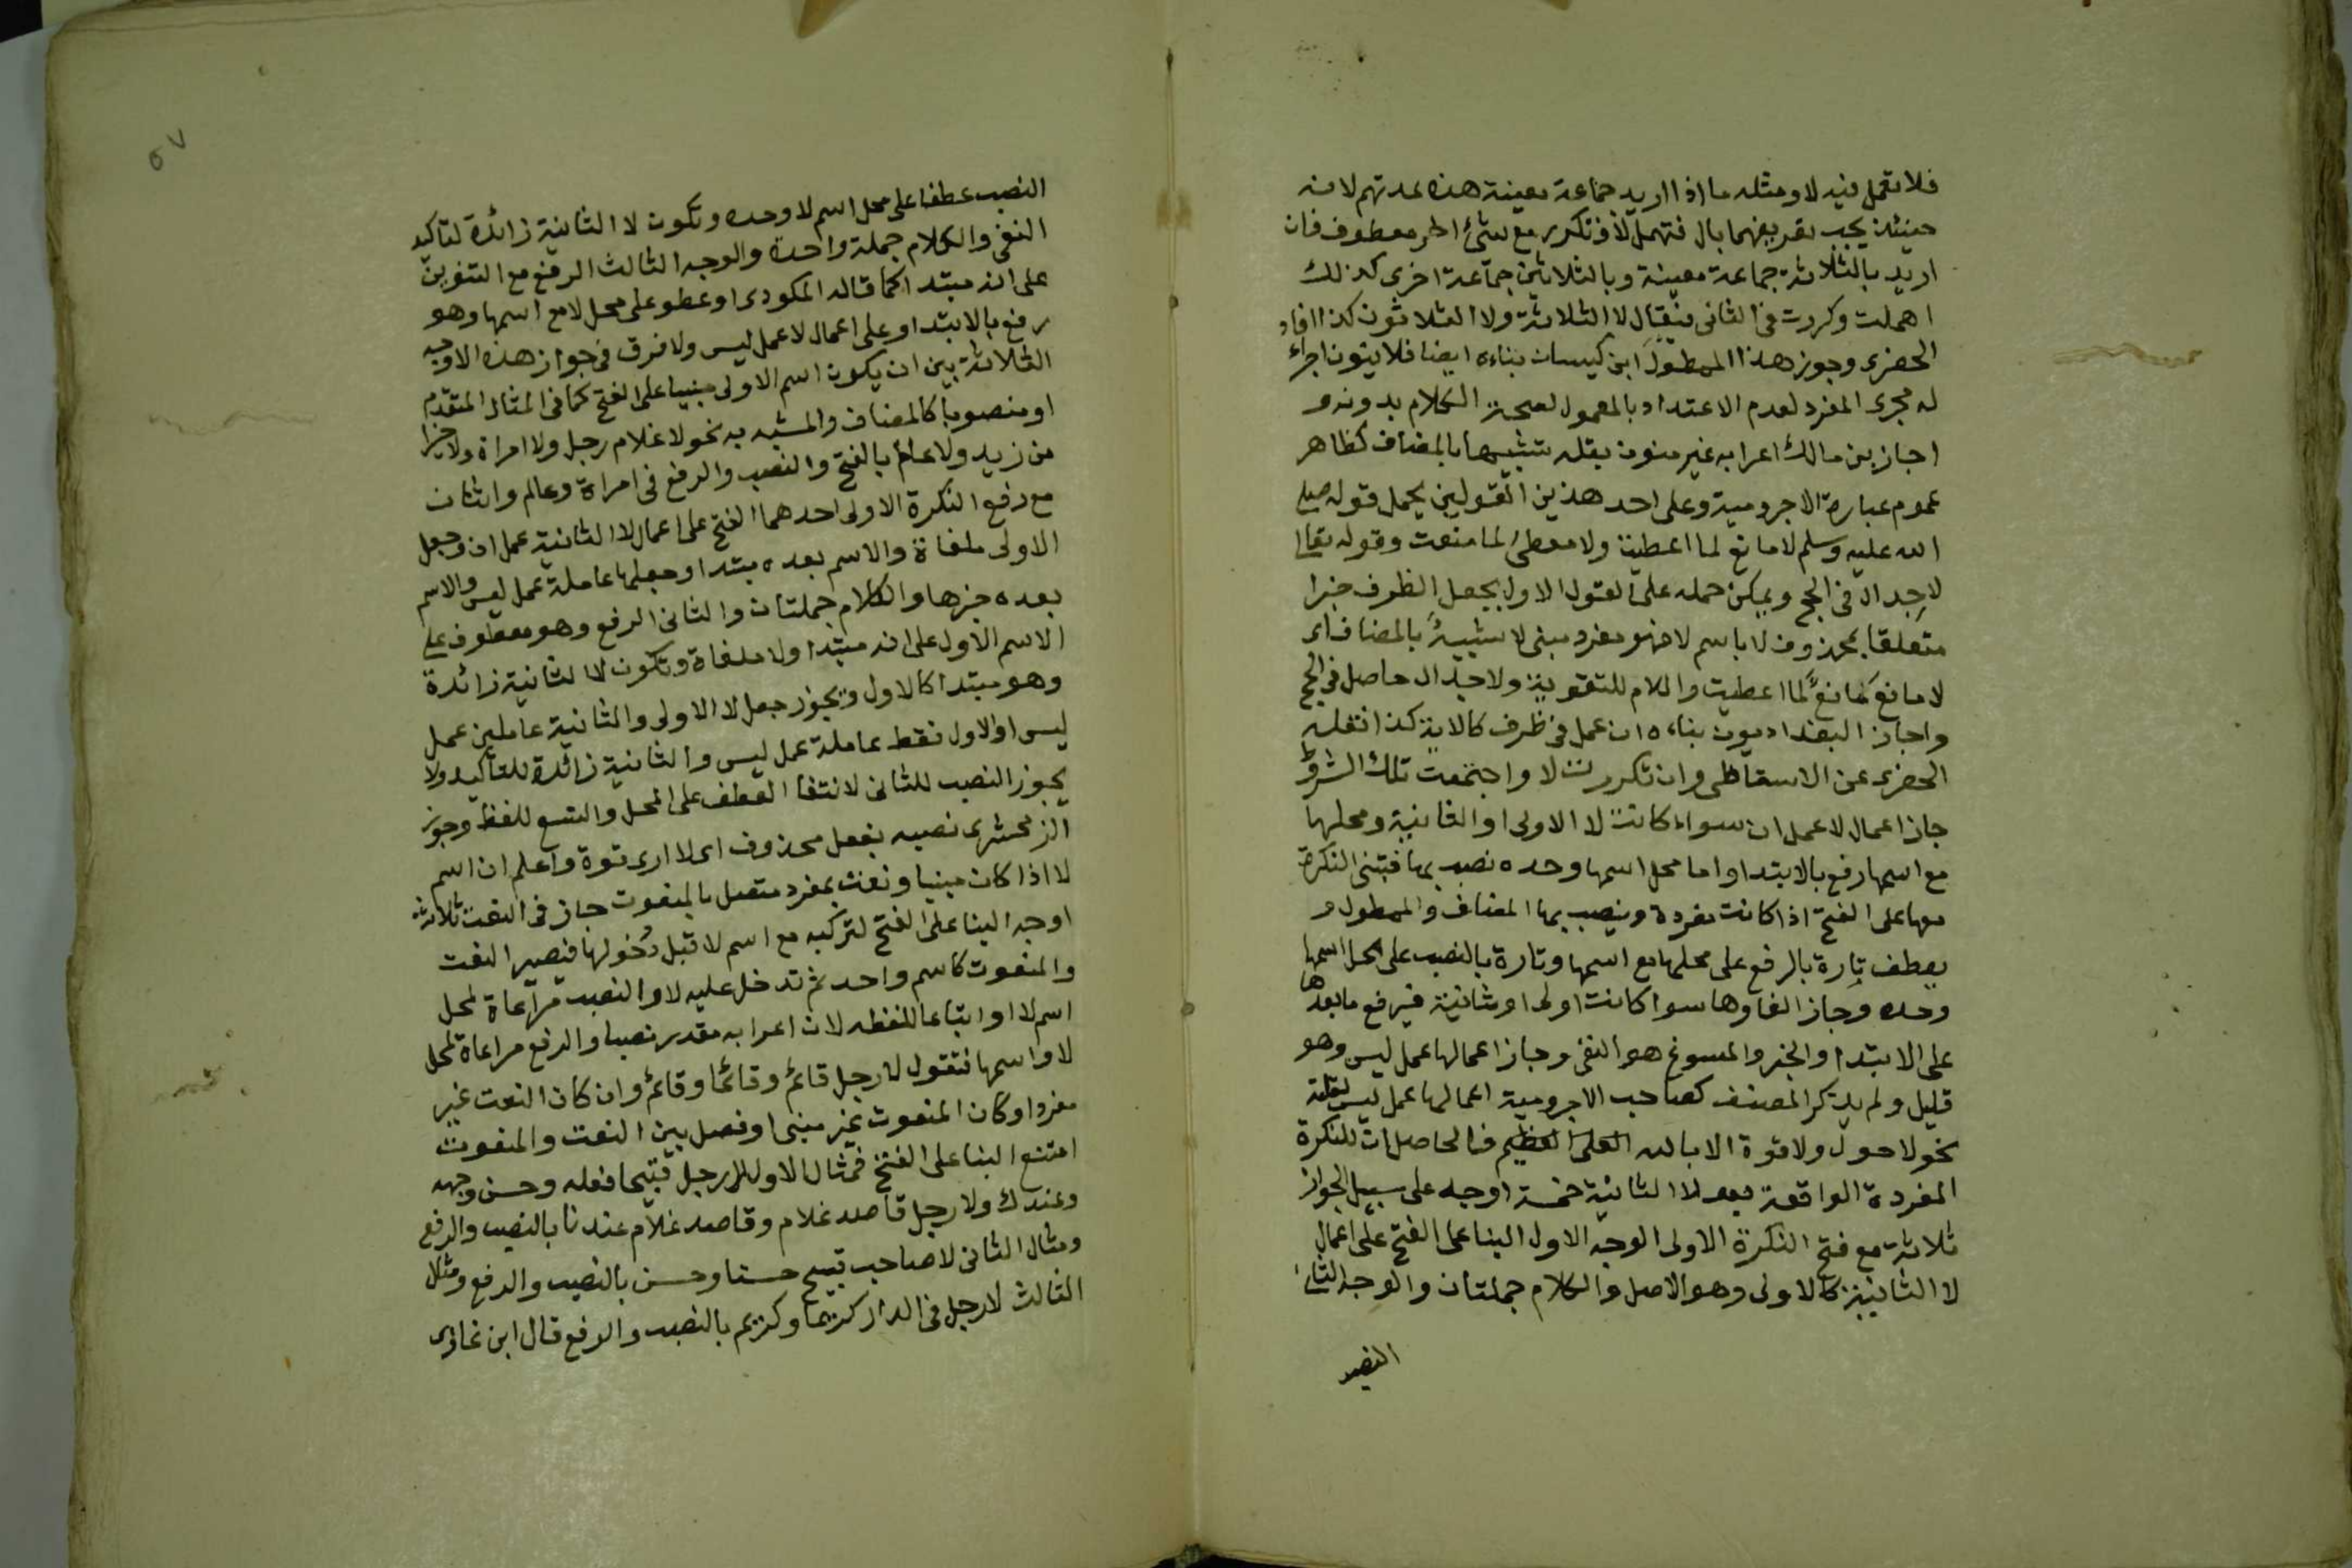 فلا تعمل فيه لا ومثله ما اذا اريد جماعة معينة هذه عدتهم لانه
حينئذ يجب تعريفهما بال فتهمل لا وتكرر مع شئ اخر معطوف فان
اريد بالثلاثة جماعة معينة وبالثلاثين جماعة اخرى كذلك
اهملت وكررت فى الثانى فيقال لا الثلاثة ولا الثلاثون كذا افاد
الحضرى وجوز هذا الممطول ابن كيسان بناءه ايضا فلا ينون اجراء
له مجرى المفرد لعدم الاعتداد بالمعمول لصحة الكلام بدونه و
اجاز بن مالك اعرابه غير منون بقله تشبيها بالمضاف كظاهر
عموم عبارة الاجرومية وعلى احد هذين القولين يحمل قوله صلى
الله عليه وسلم لا مانع لما اعطيت ولا معطى لما منعت وقوله تعالى
لا جدال فى الحج ويمكن حمله على القول الاول بجعل الظرف خبرا
متعلقا بمحذوف لا باسم لا فهو مفرد مبنى لا شبيهُ بالمضاف اى
لا مانع مانع لما اعطيت واللام للتقوية ولا جدال حاصل فى الحج
واجاز البغداديون بناءه ان عمل فى ظرف كالاية كذا نقله
الحضرى عن الاسقاطى وان تكررت لا واجتمعت تلك الشروط
جاز اعمال لا عمل ان سواء كانت لا الاولى او الثانية ومحلها
مع اسمها رفع بالابتدا واما محل اسمها وحده نصب بها فتبنى النكرة
معها على الفتح اذا كانت مفردة وينصب بها المضاف والممطول و
يعطف تارة بالرفع على محلها مع اسمها وتارة بالنصب على محل اسمها
وحده وجاز الغاوها سوا كانت اولى او ثانية فيرفع ما بعدها
على الابتدا والخبر والمسوغ هو النفى وجاز اعمالها عمل ليس وهو
قليل ولم يذكر المصنف كصاحب الاجرومية اعمالها عمل ليس لقلته
نحو لا حول ولا قوة الا بالله العلى العظيم فالحاصل ان للنكرة
المفردة الواقعة بعد لا الثانية خمسة اوجه على سبيل الجواز
ثلاثة مع فتح النكرة الاولى الوجه الاول البنا على الفتح على اعمال
لا الثانية كالاولى وهو الاصل والكلام جملتان والوجه الثانى
النصب
٥٧
النصب عطفا على محل اسم لا وحده وتكون لا الثانية زائدة لتاكيد
النفى والكلام جملة واحدة والوجه الثالث الرفع مع التنوين
على انه مبتدا كما قاله المكودى او عطو على محل لا مع اسمها وهو
رفع بالابتدا وعلى اعمال لا عمل ليس ولا فرق فى جواز هذه الاوجه
الثلاثة بين ان يكون اسم الاولى مبنيا على الفتح كما فى المثال المتقدم
او منصوبا كالمضاف والمشبه به نحو لا غلام رجل ولا امراة ولا خيرا
من زيد ولا عالم بالفتح والنصب والرفع فى امراة وعالم واثنان
مع رفع النكرة الاولى احدهما الفتح على اعمال لا الثانية عمل ان وجعل
الاولى ملغاة والاسم بعده مبتدا وجعلها عاملة عمل ليس والاسم
بعده خبرها والكلام جملتان والثانى الرفع وهو معطوف على
الاسم الاول على انه مبتدا ولا ملغاة وتكون لا الثانية زائدة
وهو مبتدا كالاول ويجوز جعل لا الاولى والثانية عاملين عمل
ليس او الاول فقط عاملة عمل ليس والثانية زائدة للتاكيد ولا
يجوز النصب للثانى لانتفا العطف على المحل والتبع للفظ وجوز
الزمخشرى نصبه بفعل محذوف اى لا ارى قوة واعلم ان اسم
لا اذا كان مبنيا ونعت بمفرد متصل بالمنعوت جاز فى النعت ثلاثة
اوجه البنا على الفتح لتركبه مع اسم لا قبل دخولها فيصير النعت
والمنعوت كاسم واحد ثم تدخل عليه لا والنصب مراعاة لمحل
اسم لا او اتباعا للفظه لان اعرابه مقدر نصبا والرفع مراعاة لمحل
لا واسمها فتقول لا رجل قائم وقائما وقائم وان كان النعت غير
مفرد او كان المنعوت غير مبنى او فصل بين النعت والمنعوت
امتنع البنا على الفتح فمثال الاول لا رجل قبيحا فعله وحسن وجهه
وعندك ولا رجل قاصد غلام وقاصد غلام عندنا بالنصب والرفع
ومثال الثانى لا صاحب قبيح حسنا وحسن بالنصب والرفع ومثال
الثالث لا رجل فى الدار كريما وكريم بالنصب والرفع قال ابن غازى